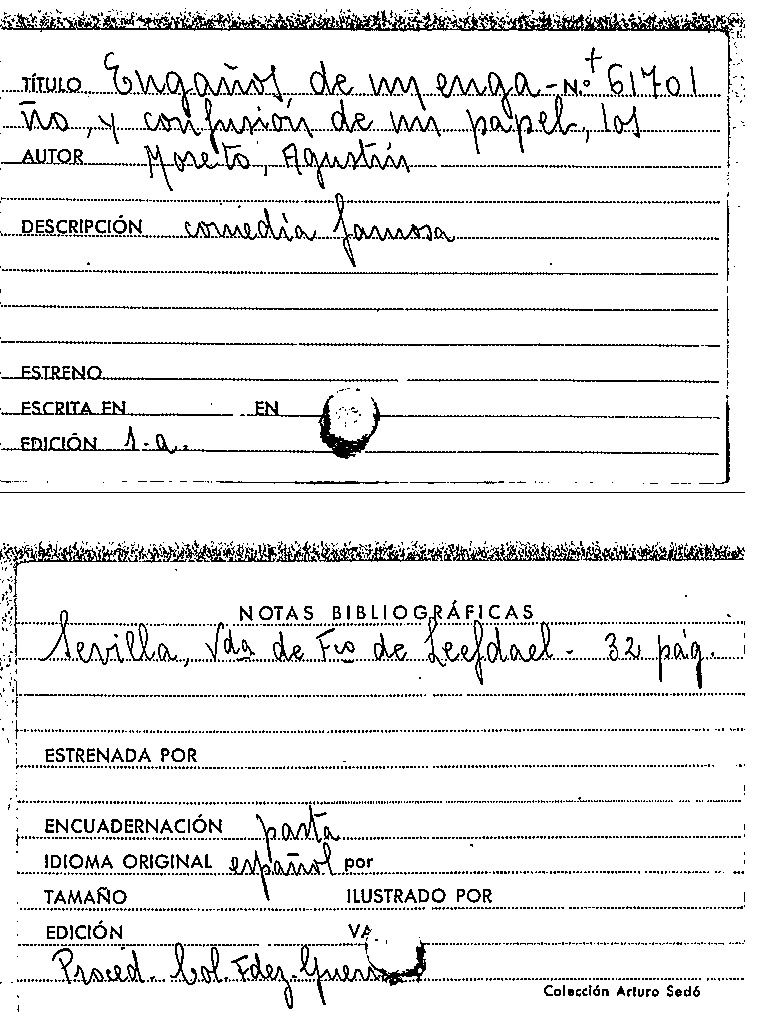 TÍTULO Engaños de un enga- N.º 61701
ño, y confusión de un papel, los
AUTOR Moreto, Agustín
DESCRIPCIÓN comedia famosa
ESTRENO
ESCRITA EN EN
EDICIÓN s.a.
NOTAS BIBLIOGRÁFICAS
Sevilla, Vda de Fco de Leefdael - 32 pág.
ESTRENADA POR
ENCUADERNACIÓN pasta
IDIOMA ORIGINAL español por
TAMAÑO ILUSTRADO POR
EDICIÓN
Proced. Col. Fdez-
Colección Arturo Sedó